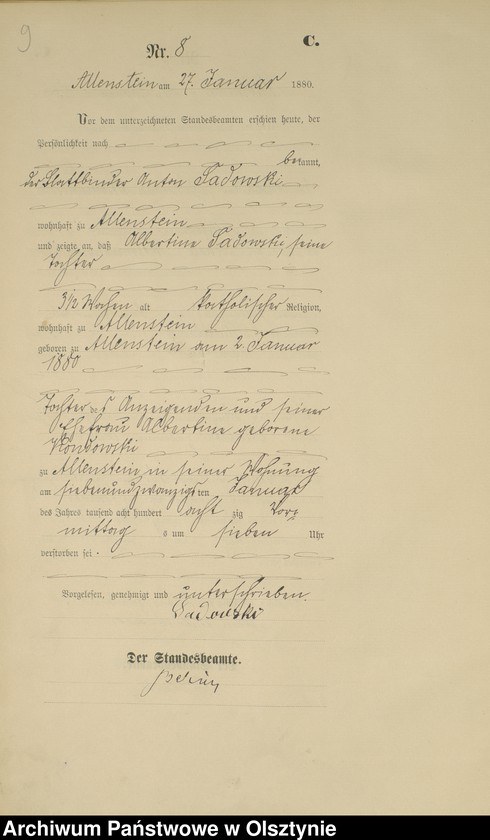 9
C.
Nr. 8
Allenstein am 27. Januar 1880.
Vor dem unterzeichneten Standesbeamten erschien heute, der
Persönlichkeit nach
bekannt,
der Blattbinder Anton Sadowski
wohnhaft zu Allenstein
und zeigte an, daß Albertine Sadowski, seine
Tochter
3 1/2 Wochen alt katholischer Religion,
wohnhaft zu Allenstein
geboren zu Allenstein am 2. Januar
1880
Tochter des Anzeigenden und seiner
Ehefrau Albertine geborene
zu Allenstein, in seiner Wohnung
am siebenundzwanzigsten Januar
des Jahres tausend acht hundert achtzig Vor-
mittags um sieben Uhr
verstorben sei.
Vorgelesen, genehmigt und unterschrieben.
Sadowski
Der Standesbeamte.
Archiwum Państwowe w Olsztynie